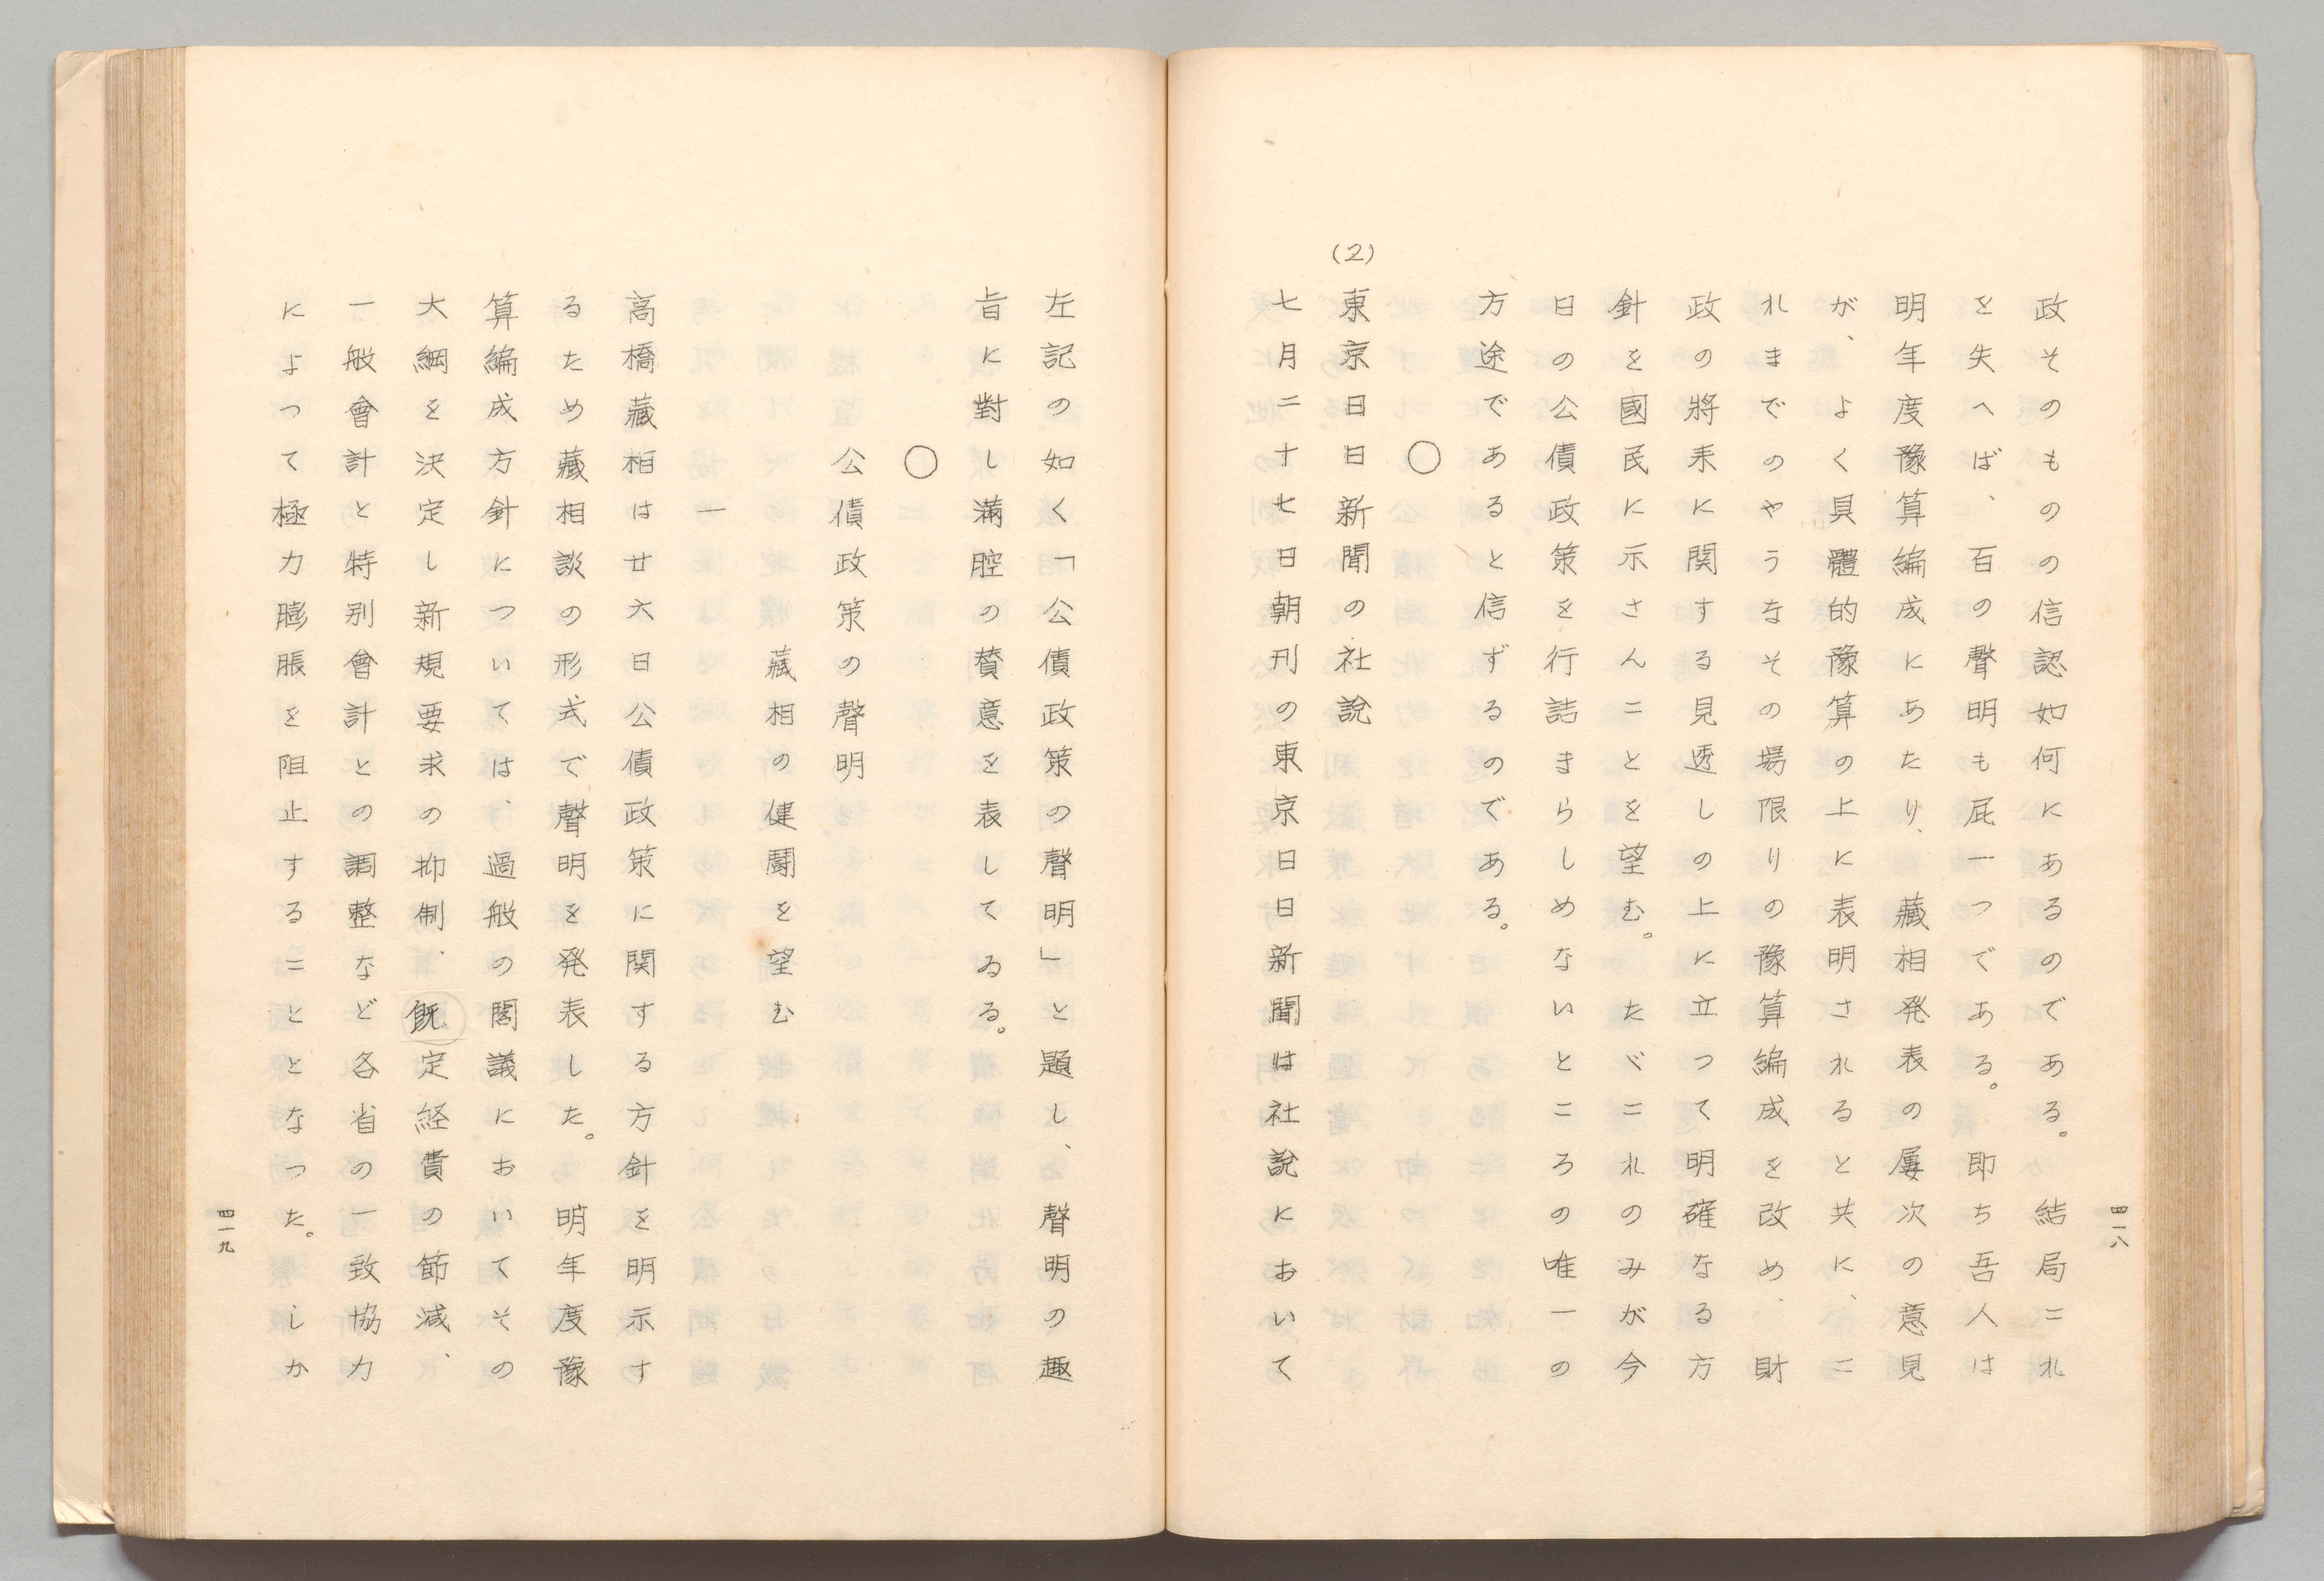 政そのものの信認如何にあるのである。結局これ
を失へば、百の聲明も屁一つである。即ち吾人は
明年度豫算編成にあたり、藏相発表の屢次の意見
が、よく具體的豫算の上に表明されると共に、こ
れまでのやうなその場限りの豫算編成を改め、財
政の將来に関する見透しの上に立つて明確なる方
針を國民に示さんことを望む。たゞこれのみが今
日の公債政策を行詰まらしめないところの唯一の
方途であると信ずるのである。
〇
(2)
東京日日新聞の社説
七月二十七日朝刊の東京日日新聞は社説において
四一八
左記の如く「公債政策の聲明」と題し、聲明の趣
旨に對し満腔の賛意を表してゐる。
〇
公債政策の聲明
藏相の健闘を望む
一
高橋藏相は廿六日公債政策に関する方針を明示す
るため藏相談の形式で聲明を発表した。明年度豫
算編成方針については、過般の閣議においてその
大綱を決定し新規要求の抑制、既定経費の節減、
一般會計と特別會計との調整など各省の一致協力
によつて極力膨脹を阻止することとなつた。しか
四一九